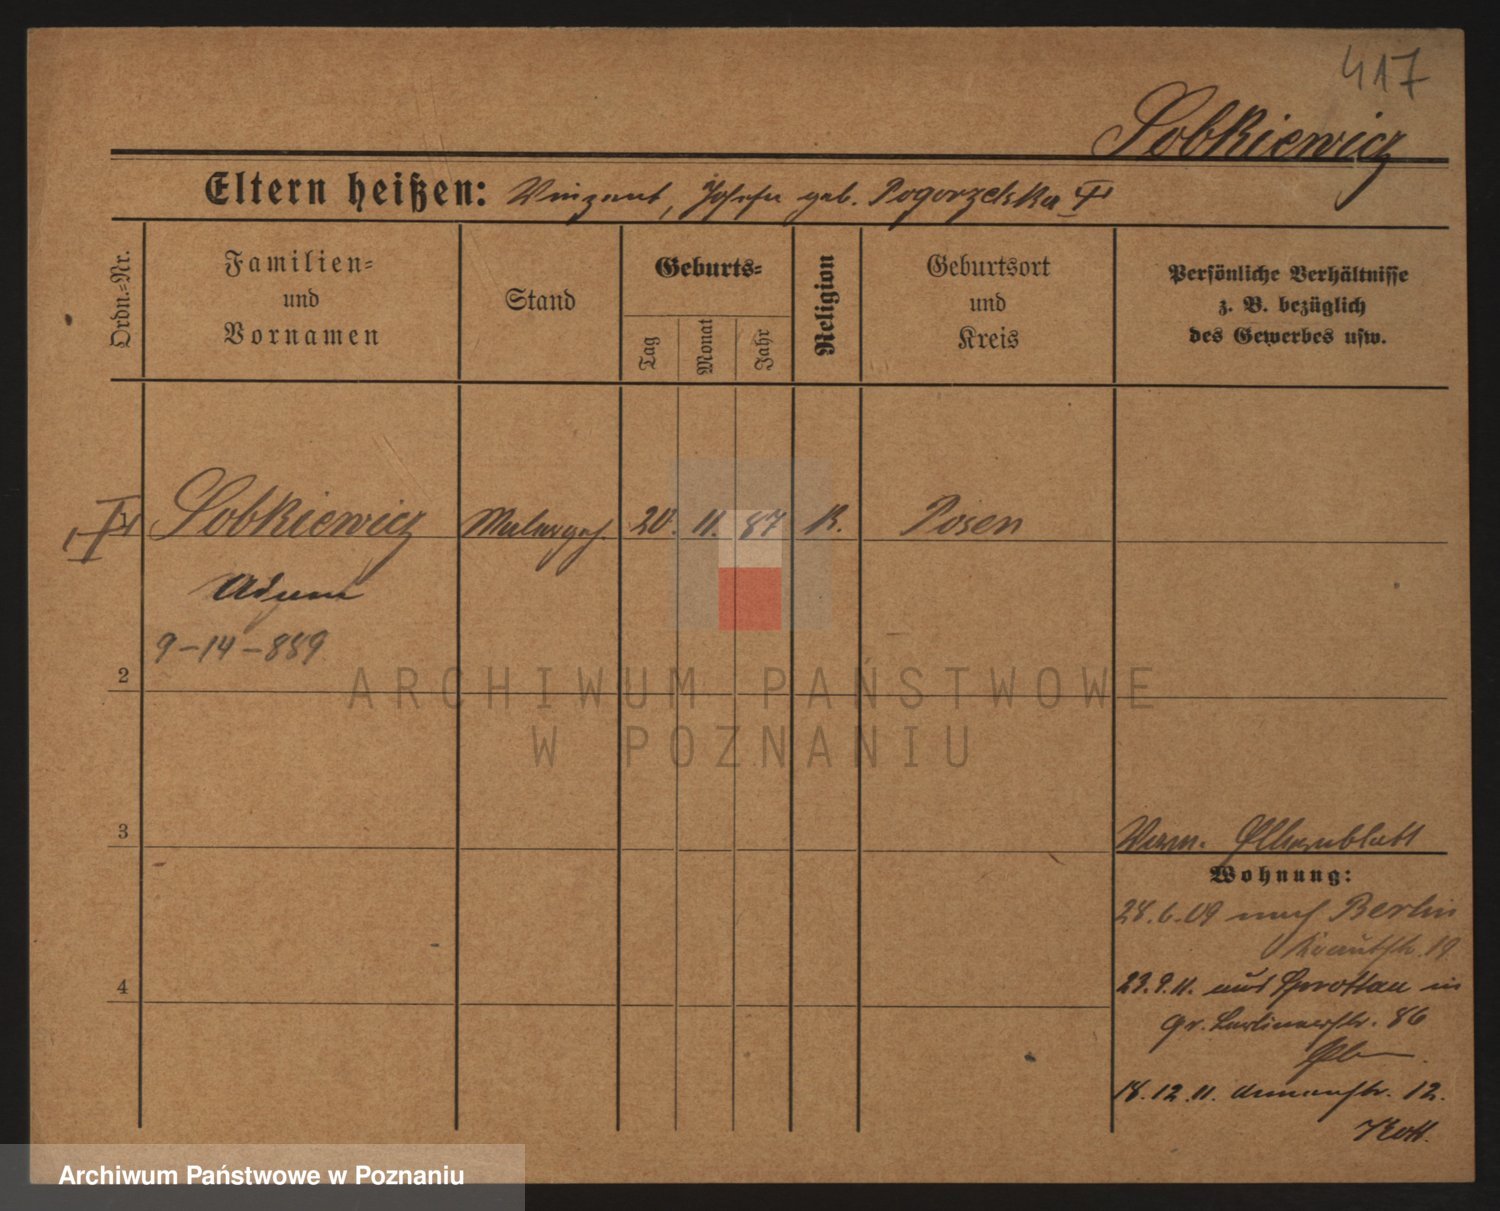 417
Sobkiewicz
Eltern heißen: Vinzent, Josefa geb. Pogorzelska
Ordn.-Nr.
Familien-
und
Vornamen
Stand
Geburts-
Tag
Monat
Jahr
Religion
Geburtsort
und
Kreis
Persönliche Verhältnisse
z. B. bezüglich
des Gewerbes usw.
Sobkiewicz Malergeh. 20. 11. 87 K. Posen
Adam
9-14-889
2
ARCHIWUM PAŃSTWOWE
W POZNANIU
3
Elternblatt
Wohnung:
28.6.09 nach Berlin
Krautstr. 19
23.9.11. aus Grottau in
gr. Berlinerstr. 86
4
18.12.11. 12.
Archiwum Państwowe w Poznaniu